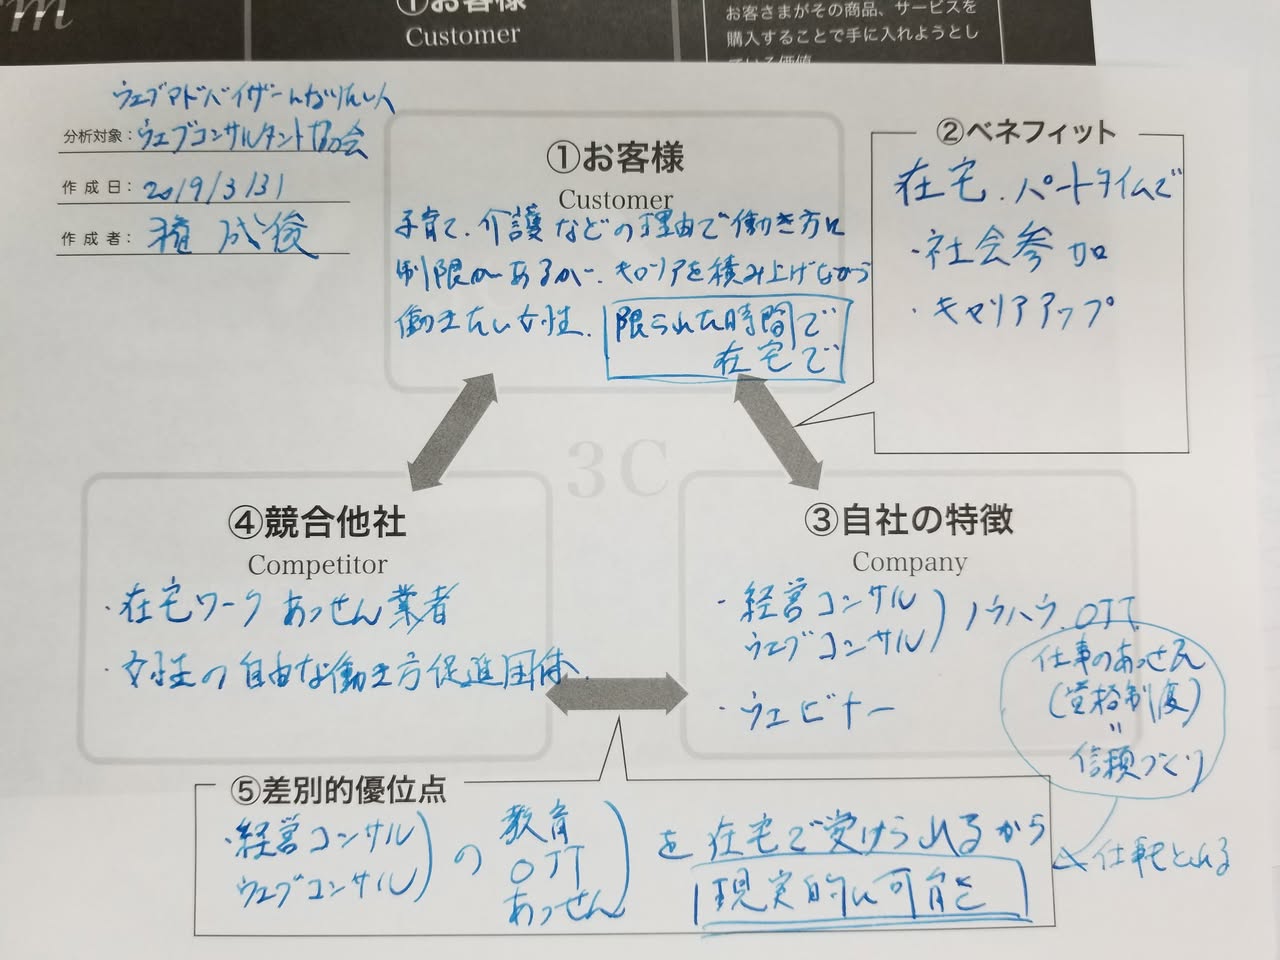 rm
①お客様
Customer
お客さまがその商品、サービスを
購入することで手に入れようとし
ている価値
ウェブアドバイザーになりたい人
分析対象：ウェブコンサルタント協会
作成日：2019/3/31
作成者：
①お客様
Customer
子育て、介護などの理由で働き方に
制限があるが、キャリアを積み上げながら
働きたい女性。限られた時間で
在宅で
②ベネフィット
在宅、パートタイムで
・社会参加
・キャリアアップ
3C
④競合他社
Competitor
・在宅ワークあっせん業者
・女性の自由な働き方促進団体
③自社の特徴
Company
・経営コンサル
ウェブコンサル
ノウハウ、OJT
・ウェビナー
仕事のあっせん
(登格制度)
〃
信頼づくり
⑤差別的優位点
・経営コンサル
ウェブコンサル
の
教育
OJT
あっせん
を在宅で受けられるから
現実的に可能と
仕事もとれる